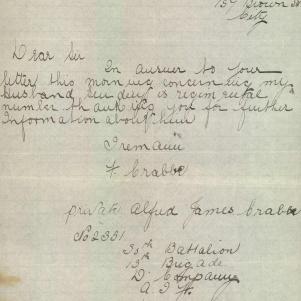 Brown St
City
Dear Sir
In answer to your
letter this morning concerning my
husband sending is regimental
number thanking you for further
Information about him
I remain
F Crabbe
private Alfred James Crabbe
No 2331
35th Battalion
Brigade
D. Company
A. I. F.